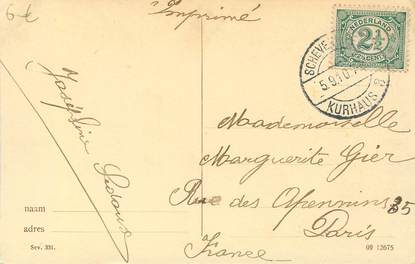 6€
Imprimé
NEDERLAND
2½
CENT
SCHEVE
5.9.10
KURHAUS
Joséphine
Mademoiselle
Marguerite Gier
Rue des Apennins 35
Paris
France
naam
adres
Sev. 331.
09 12675